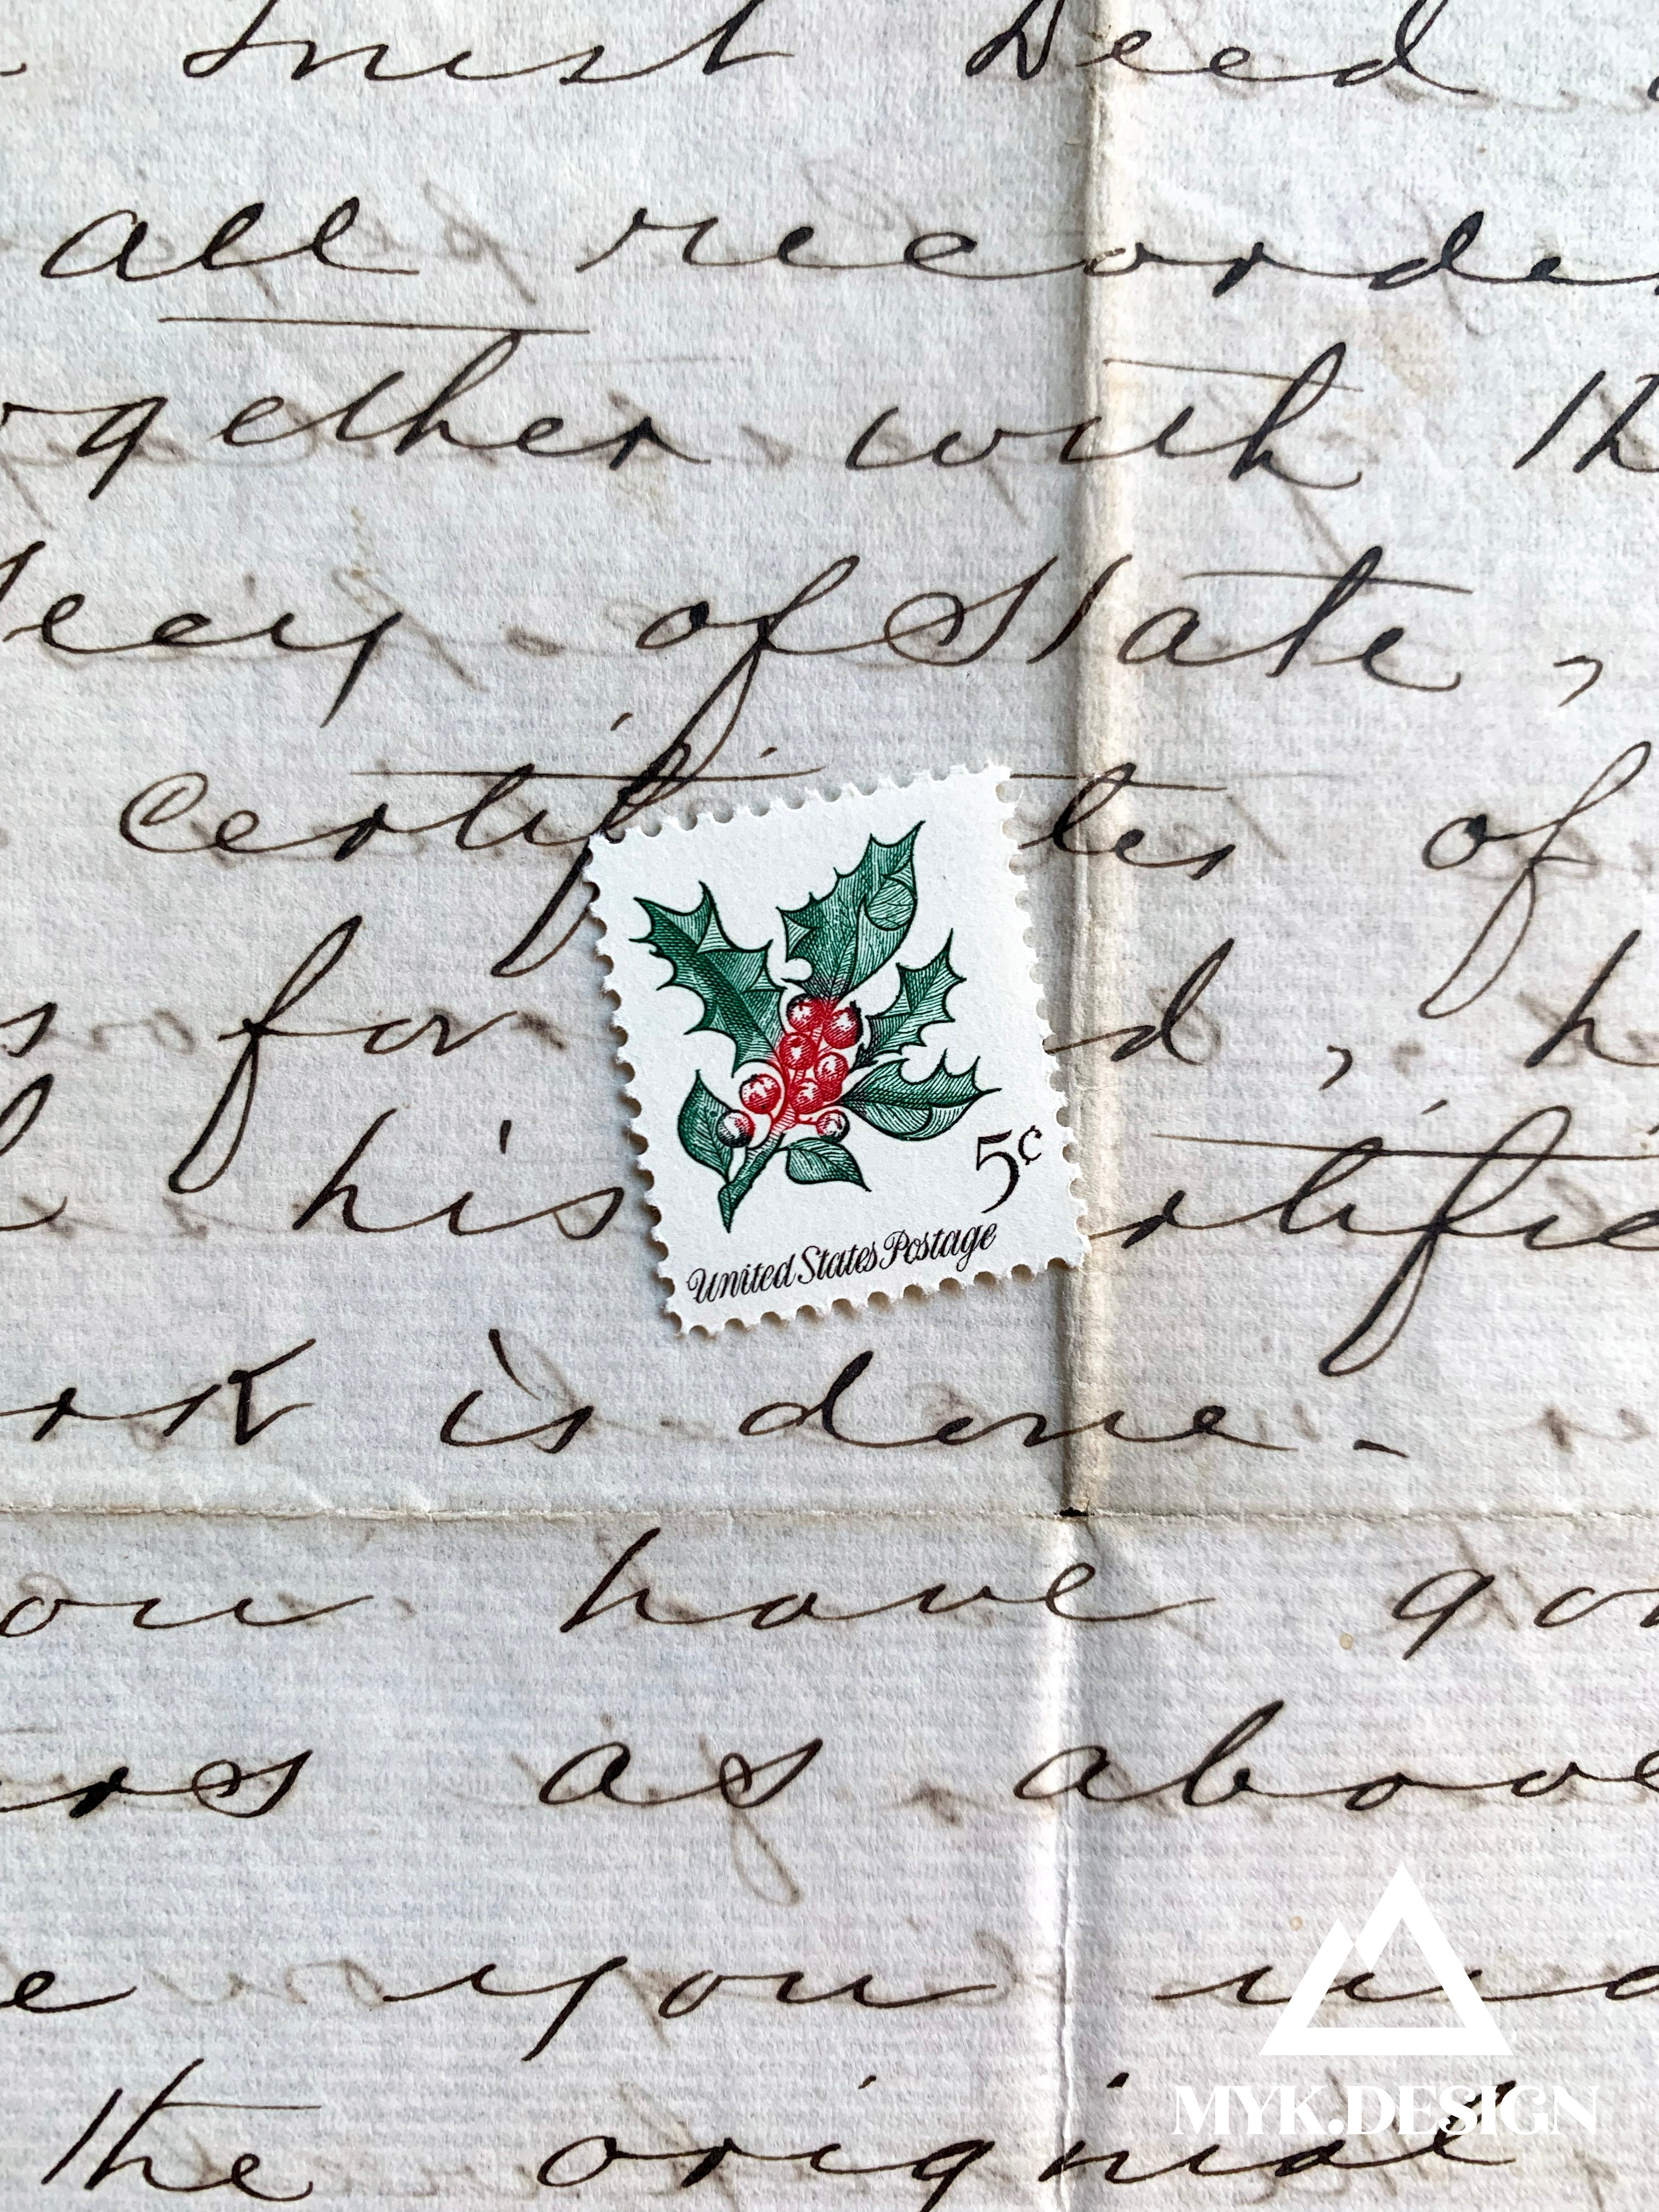 Trust Deed
all recorde
ogether with th
Secy of State,
certif tes of
s for d, h
his rtific
ork is done -
ou have go
ers as above
e you
the original
5¢
United States Postage
MYK.DESIGN